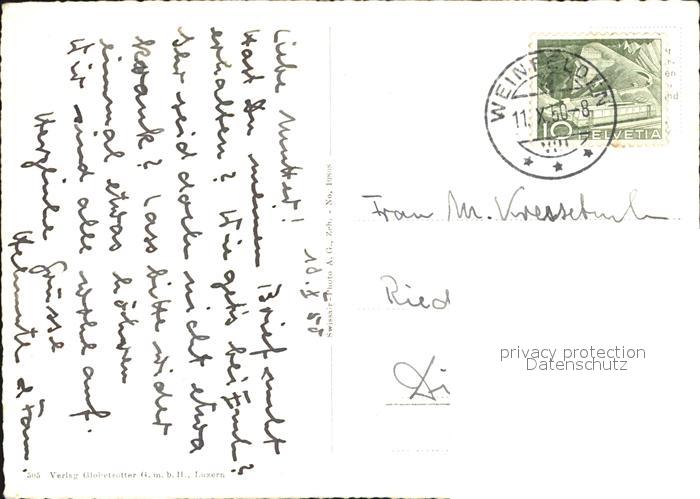 18. X 50
Liebe Mutter!
Hast Du meinen Brief nicht
erhalten? Wie geht's bei Euch?
Ihr seid doch nicht etwa
krank? Lass bitte wieder
einmal etwas hören
Wir sind alle wohl auf.
Herzliche Grüsse
Helmute & Fam.
Swissair-Photo A. G., Zch. - No. 10808
505 Verlag Globetrotter G. m. b. H., Luzern
WEINFELDEN
11. X. 50-8
10 HELVETIA
Frau M. Kressebuch
Ried
privacy protection
Datenschutz